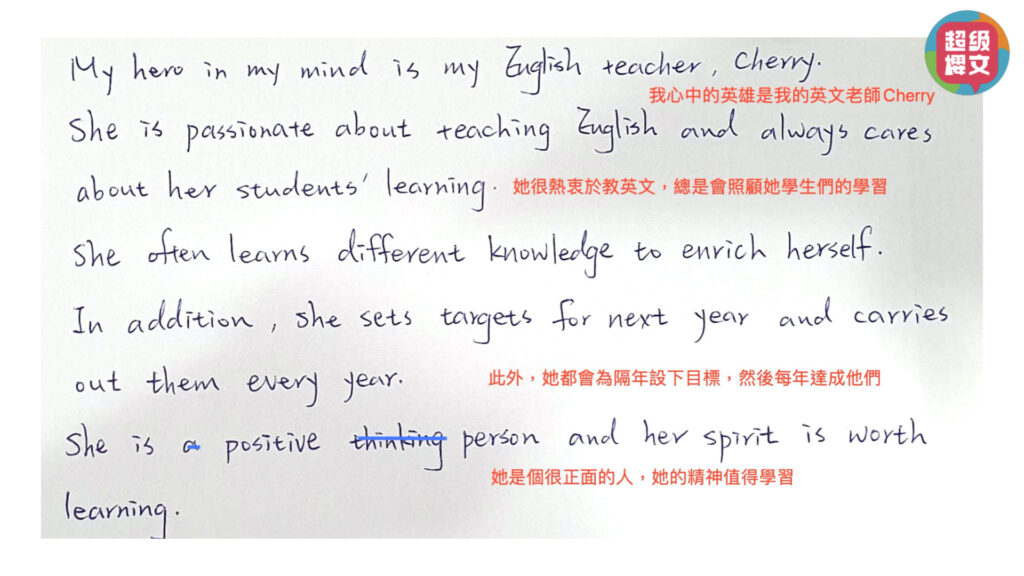 My hero in my mind is my English teacher, Cherry.
我心中的英雄是我的英文老師Cherry
She is passionate about teaching English and always cares
about her students' learning.
她很熱衷於教英文，總是會照顧她學生們的學習
She often learns different knowledge to enrich herself.
In addition, she sets targets for next year and carries
out them every year.
此外，她都會為隔年設下目標，然後每年達成他們
She is a positive thinking person and her spirit is worth
她是個很正面的人，她的精神值得學習
learning.
超級
櫻文